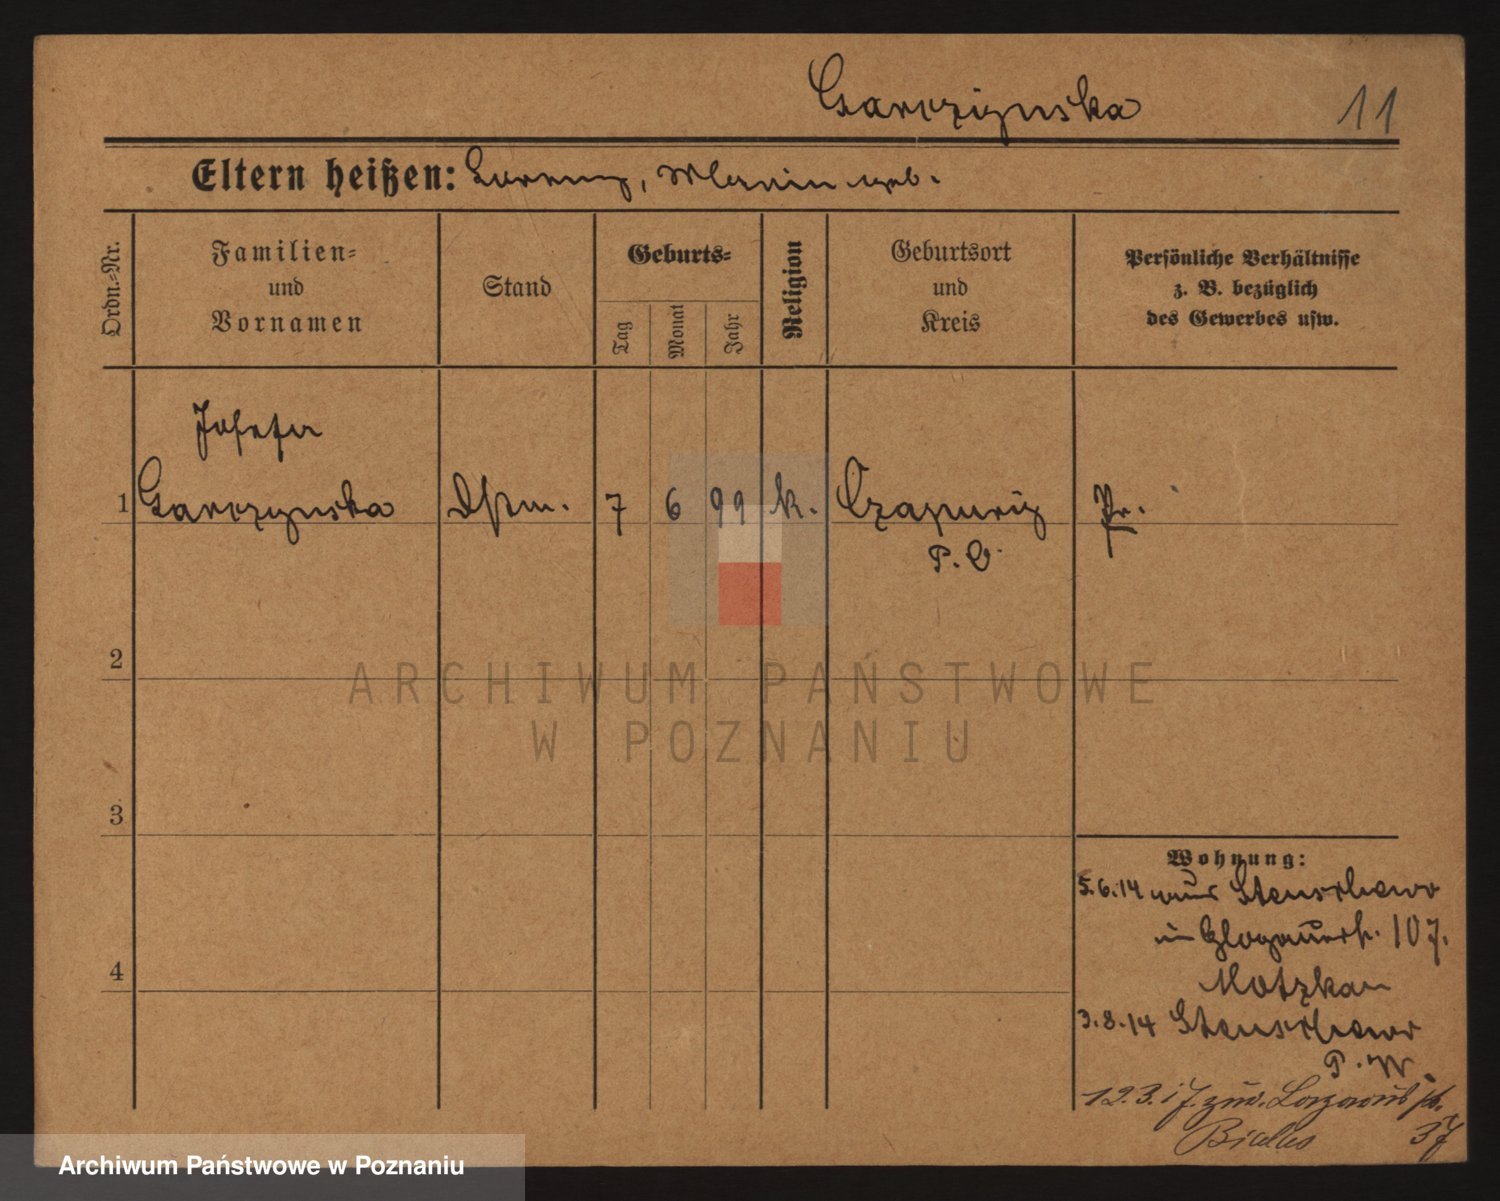 Garczynska 11
Eltern heißen: Lorenz, Maria geb.
Ordn.=Nr.
Familien=
und
Vornamen
Stand
Geburts=
Tag
Monat
Jahr
Religion
Geburtsort
und
Kreis
Persönliche Verhältnisse
z. B. bezüglich
des Gewerbes usw.
Josefa
1 Garczynska Dstm. 7 6 99 k. Czapury Pr.
P. O.
2
3
4
Wohnung:
5.6.14 aus Stenschewo
in Glogauerst. 107.
Motzkau
3.8.14 Stenschewo
P. W.
12.3.17. zur. Lazarus st.
37
ARCHIWUM PAŃSTWOWE
W POZNANIU
Archiwum Państwowe w Poznaniu